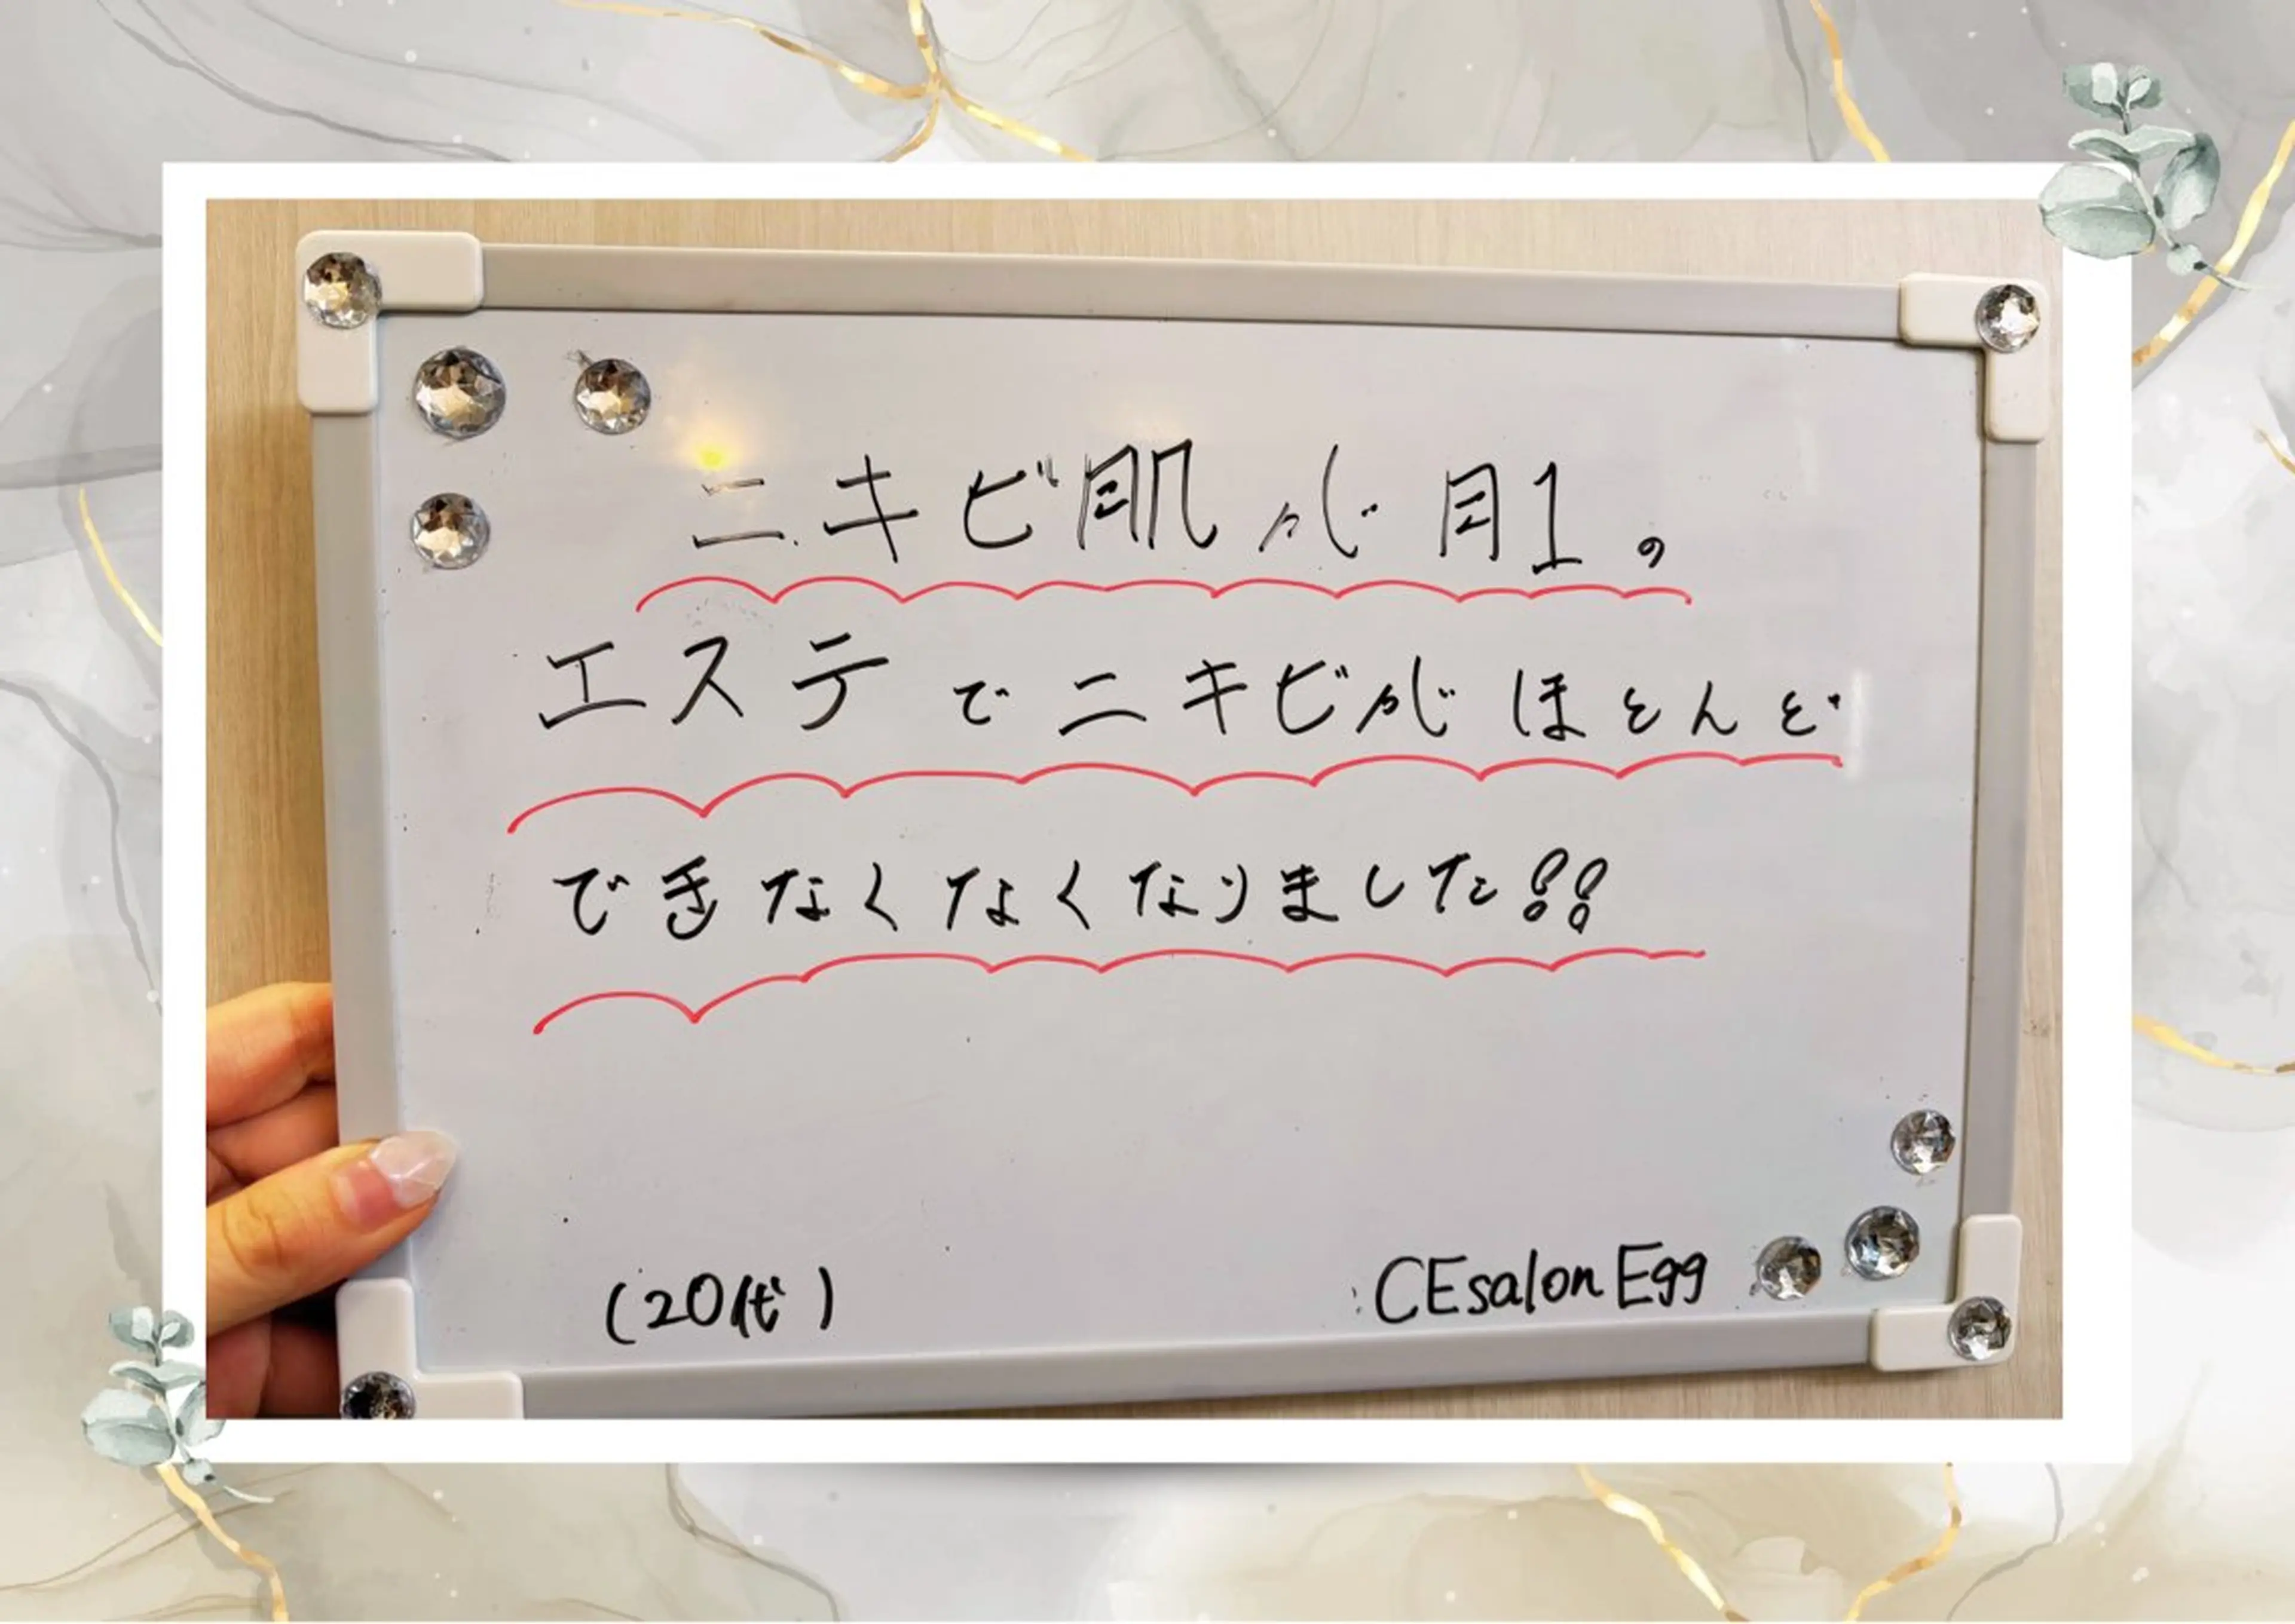 ニキビ肌が月1の
エステでニキビがほとんど
できなくなくなりました!!
(20代)
CEsalon Egg